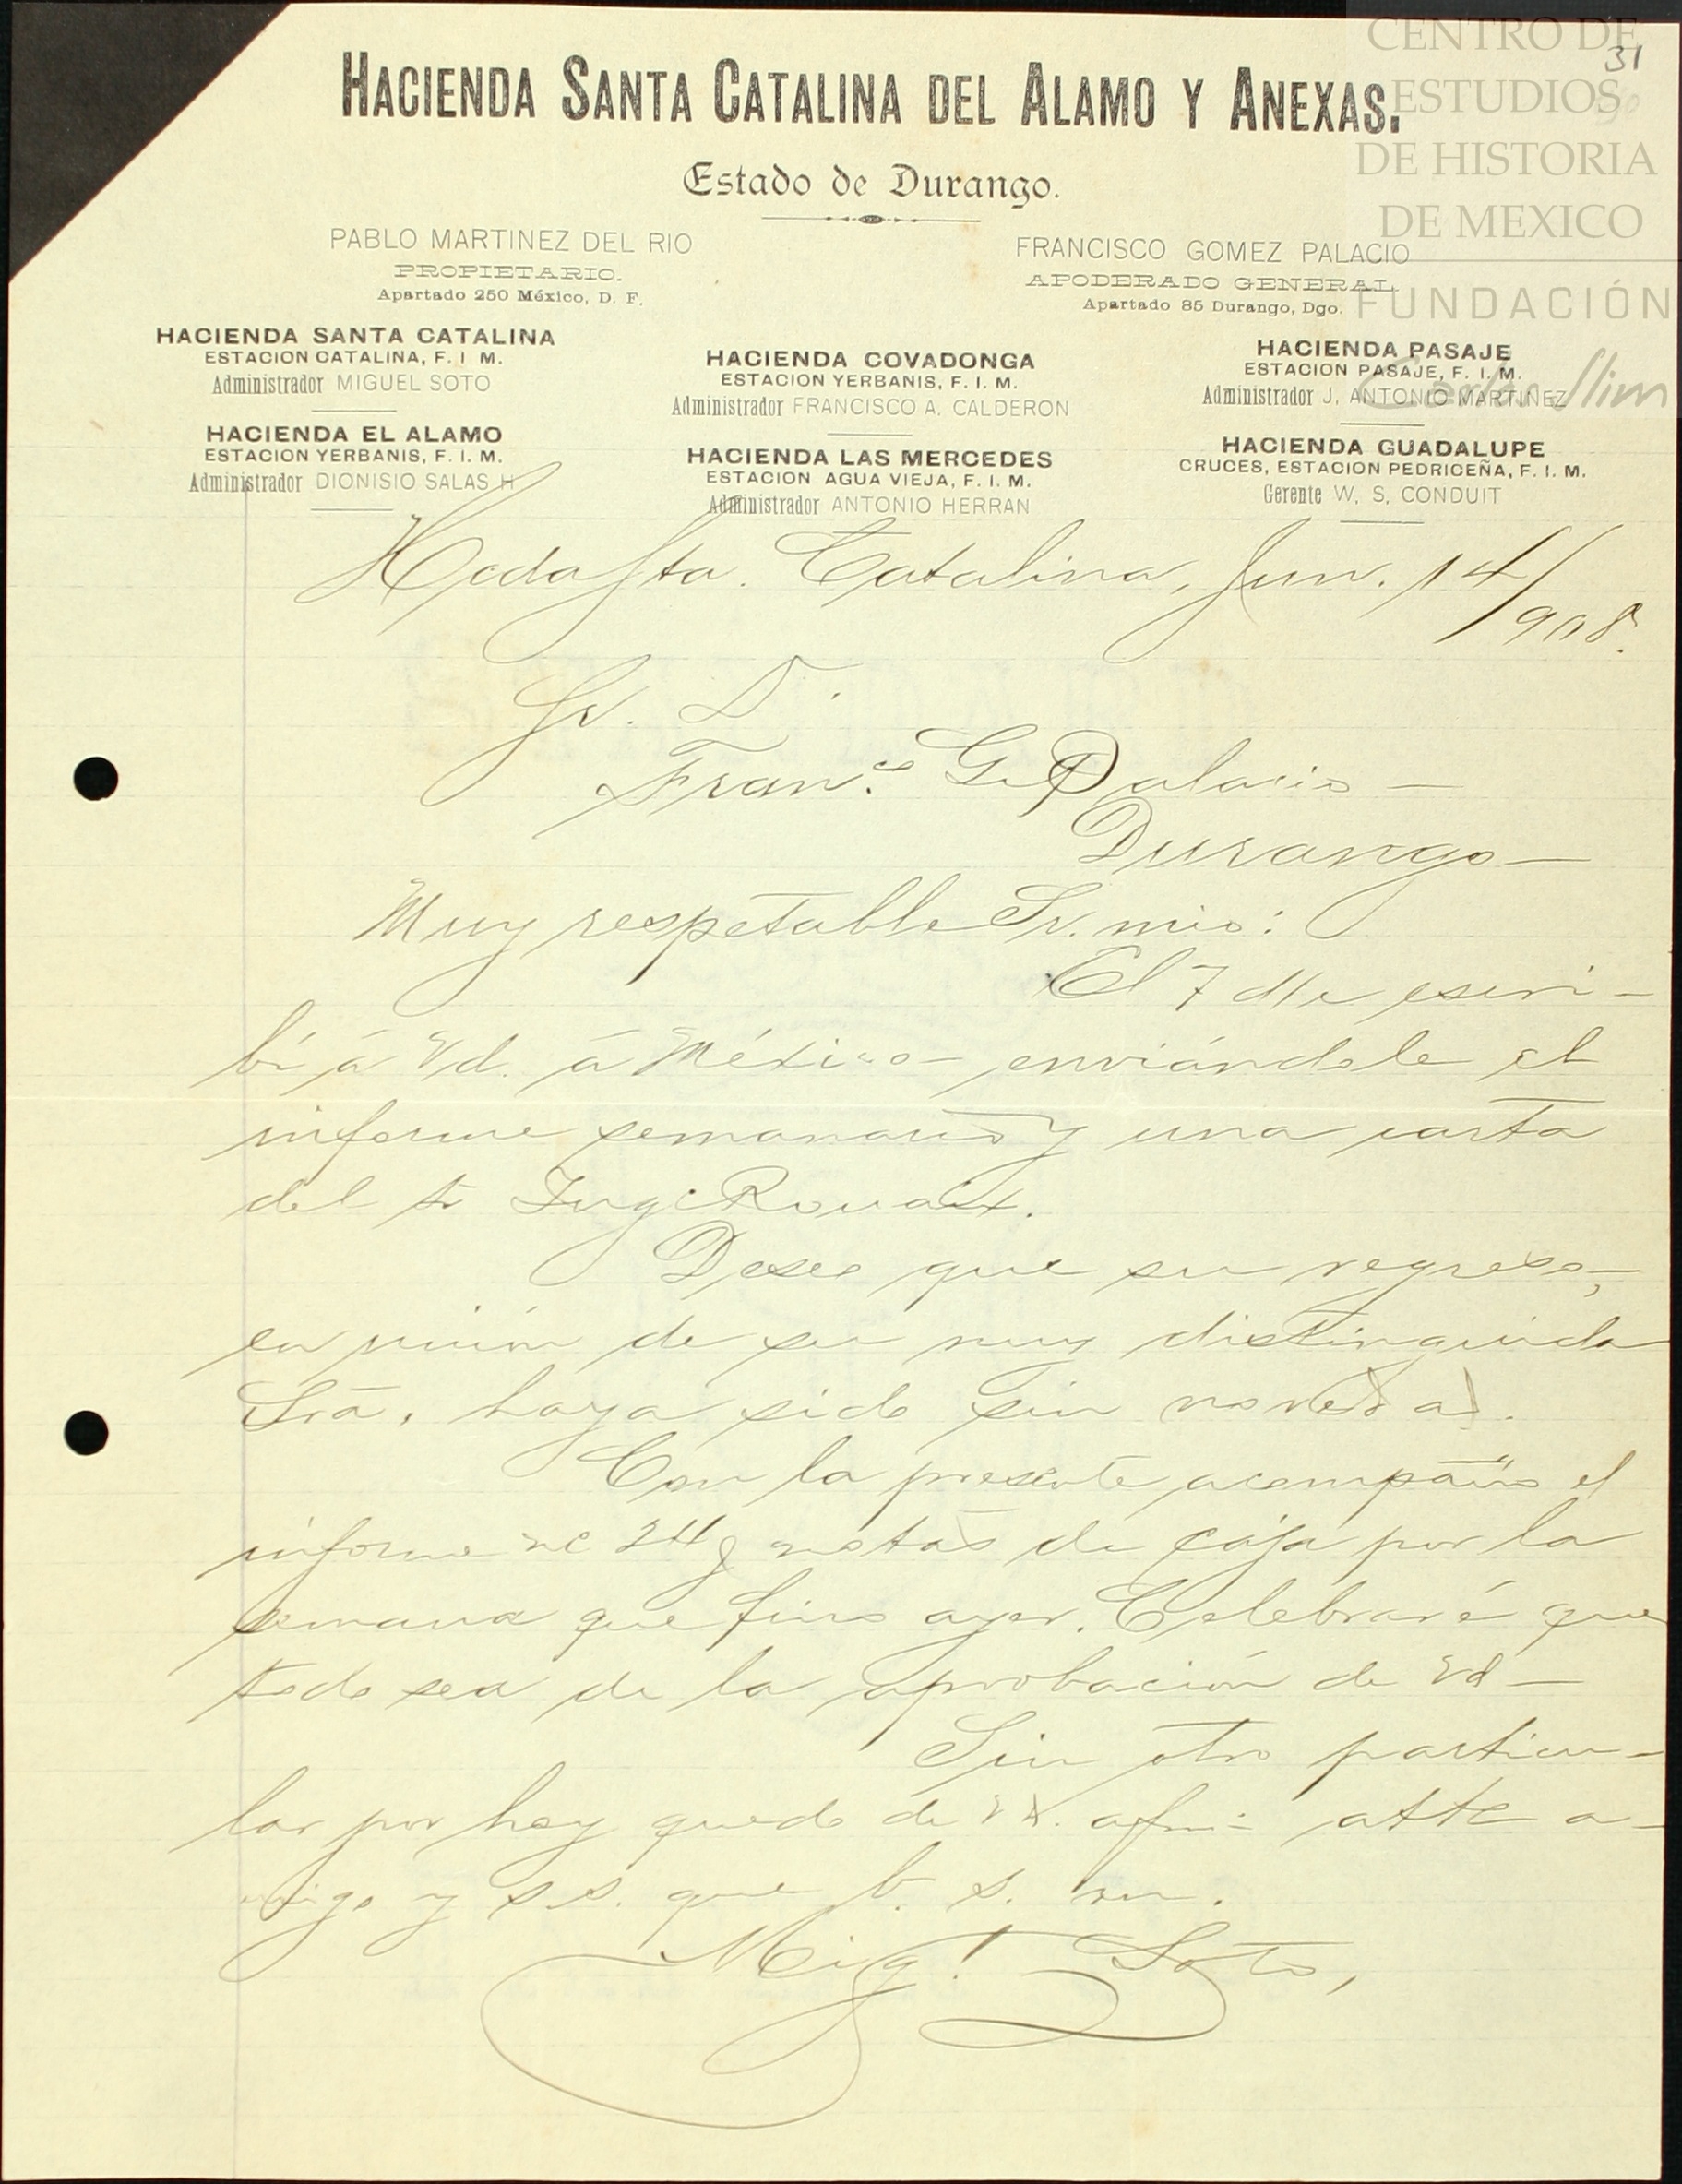 31
CENTRO DE
ESTUDIOS
DE HISTORIA
DE MEXICO
FUNDACIÓN
Carlos Slim
HACIENDA SANTA CATALINA DEL ALAMO Y ANEXAS.
Estado de Durango.
PABLO MARTINEZ DEL RIO
PROPIETARIO.
Apartado 250 México, D. F.
FRANCISCO GOMEZ PALACIO
APODERADO GENERAL
Apartado 85 Durango, Dgo.
HACIENDA SANTA CATALINA
ESTACION CATALINA, F. I M.
Administrador MIGUEL SOTO
HACIENDA EL ALAMO
ESTACION YERBANIS, F. I. M.
Administrador DIONISIO SALAS H
HACIENDA COVADONGA
ESTACION YERBANIS, F. I. M.
Administrador FRANCISCO A. CALDERON
HACIENDA LAS MERCEDES
ESTACION AGUA VIEJA, F. I. M.
Administrador ANTONIO HERRAN
HACIENDA PASAJE
ESTACION PASAJE, F. I. M.
Administrador J. ANTONIO MARTINEZ
HACIENDA GUADALUPE
CRUCES, ESTACION PEDRICEÑA, F. I. M.
Gerente W. S. CONDUIT
Hcda Sta. Catalina, Jun. 14/
908.
Sr. D.
Franco. G. Palacio—
Durango—
Muy respetable Sr. mio:
El 7 escri-
bí á Vd. á México— enviándole el
informe semanario y una carta
del Sr Ing Rouaix.
Deseo que su regreso,
en unión de su muy distinguida
Sra, haya sido sin novedad.
Con la presente acompaño el
informe no 24 y notas de caja por la
semana que finó ayer. Celebraré que
todo sea de la aprobación de Vd—
Sin otro particu-
lar por hoy quedo de Vd. afmo atto a-
migo y s.s. que b. s. m.
Migl. Soto,